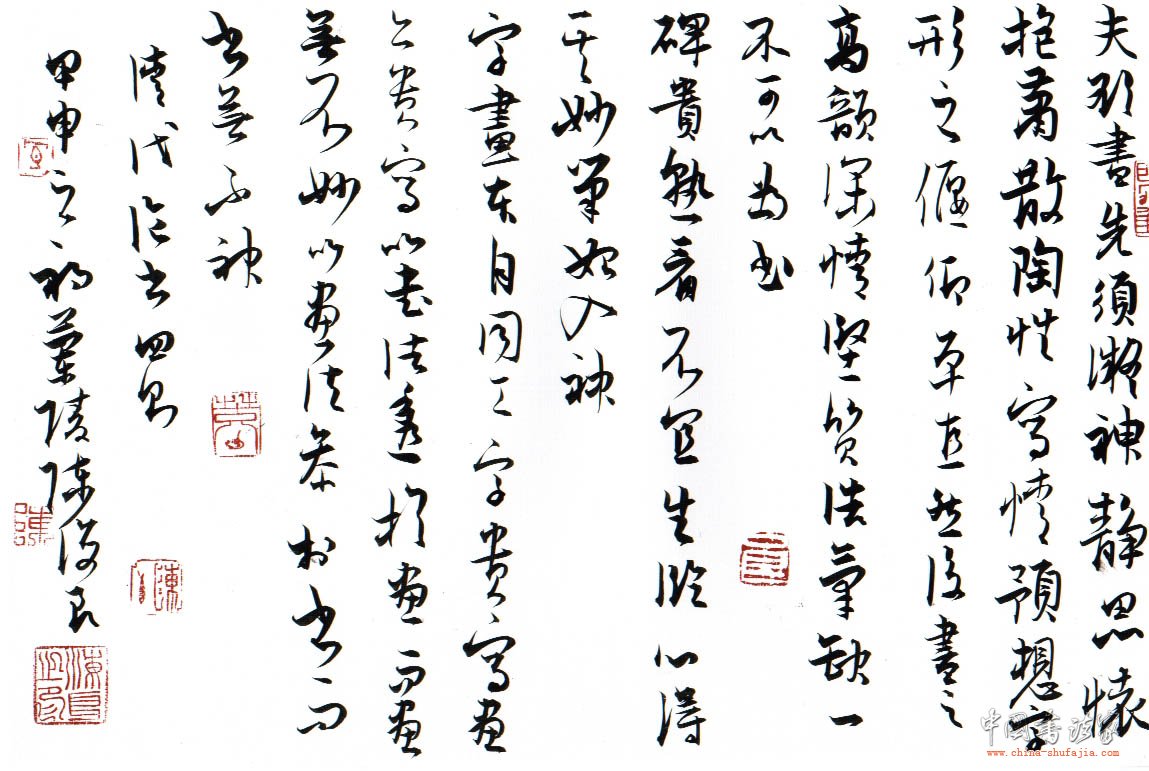 夫欲書先須凝神靜思懷
抱蕭散陶性寫情預想字
形之偃仰平直然後書之
高韻深情堅質浩氣缺一
不可以為書
碑貴熟看不宜生臨心得
其妙筆始入神
字畫本自同工字貴寫畫
亦貴寫以書法透於畫而畫
無不妙以畫法參於書而
書無不神
清代論書四則
甲申之初蘭陵陳海良
中国书法家
www.china-shufajia.com